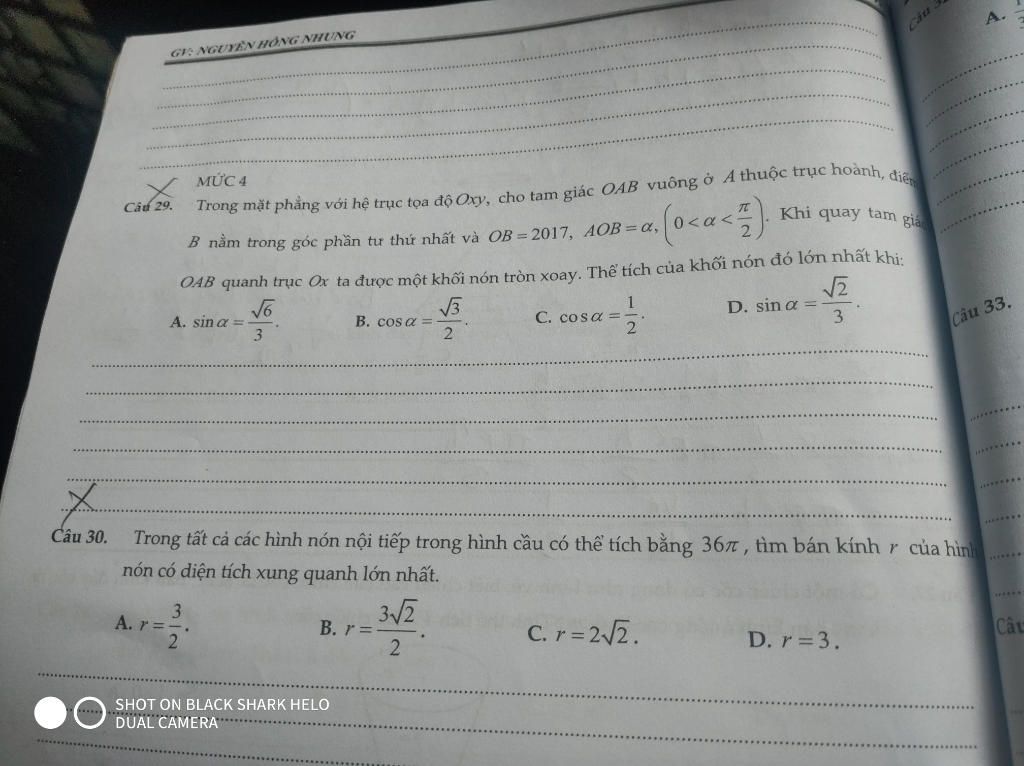 GV: NGUYỄN HỒNG NHUNG
Câu
A.
MỨC 4
Câu 29. Trong mặt phẳng với hệ trục tọa độ Oxy, cho tam giác OAB vuông ở A thuộc trục hoành, điểm
B nằm trong góc phần tư thứ nhất và OB = 2017, AOB = α, (0 < α < π/2). Khi quay tam giác
OAB quanh trục Ox ta được một khối nón tròn xoay. Thể tích của khối nón đó lớn nhất khi:
A. sin α = √6/3. B. cos α = √3/2. C. cos α = 1/2. D. sin α = √2/3.
Câu 33.
Câu 30. Trong tất cả các hình nón nội tiếp trong hình cầu có thể tích bằng 36π, tìm bán kính r của hình
nón có diện tích xung quanh lớn nhất.
A. r = 3/2. B. r = 3√2/2. C. r = 2√2. D. r = 3.
Câu
SHOT ON BLACK SHARK HELO
DUAL CAMERA